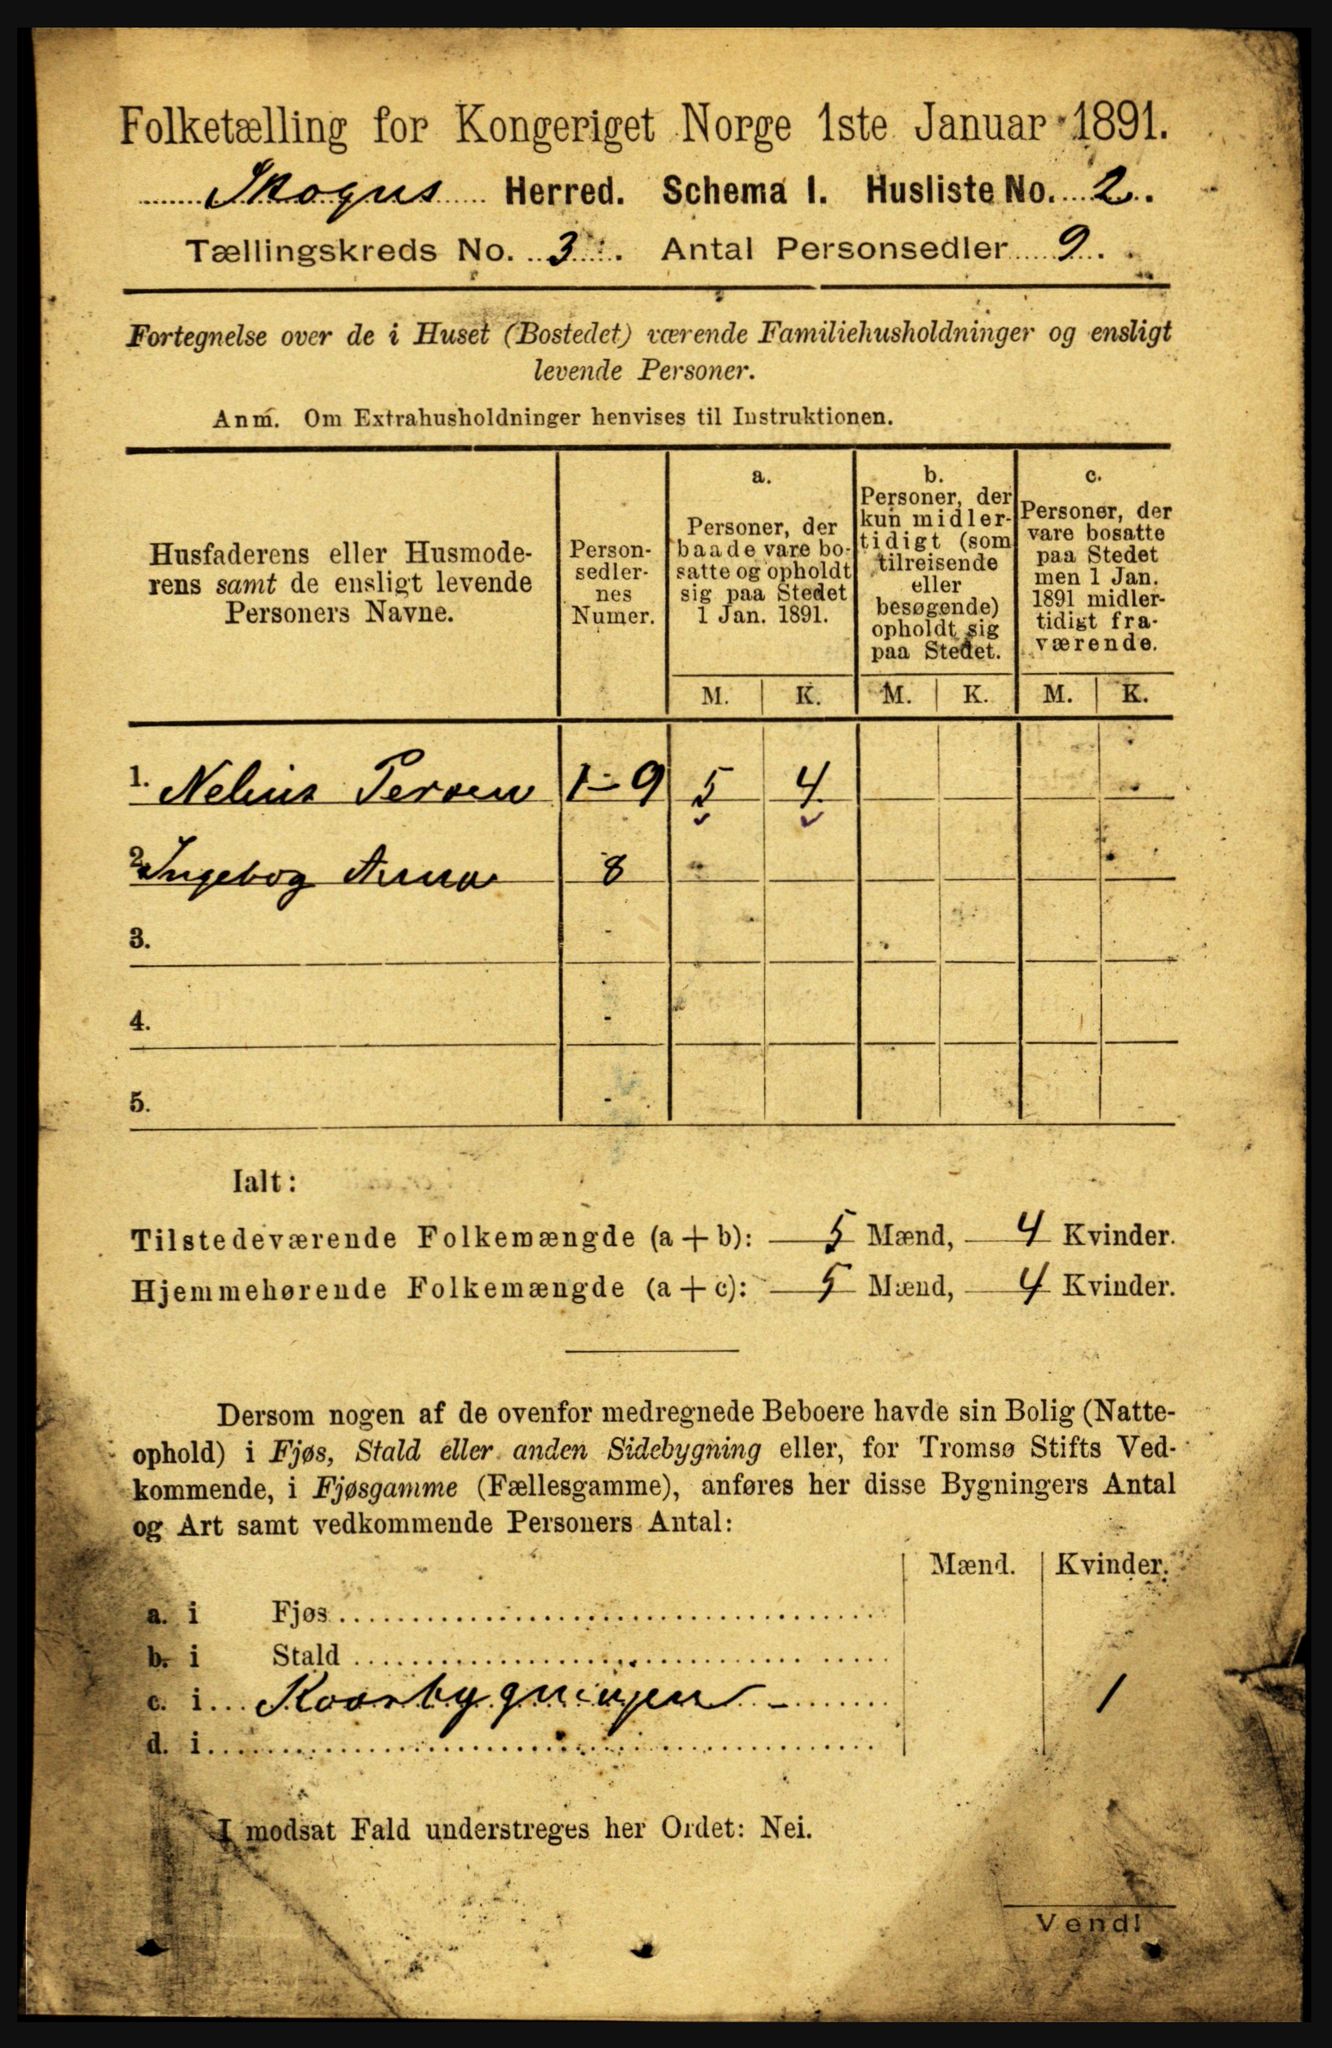 Folketælling for Kongeriget Norge 1ste Januar 1891.
Skogns Herred. Schema I. Husliste No. 2.
Tællingskreds No. 3. Antal Personsedler 9.
Fortegnelse over de i Huset (Bostedet) værende Familiehusholdninger og ensligt
levende Personer.
Anm. Om Extrahusholdninger henvises til Instruktionen.
Husfaderens eller Husmode-
rens samt de ensligt levende
Personers Navne.
Person-
sedler-
nes
Numer.
a.
Personer, der
baade vare bo-
satte og opholdt
sig paa Stedet
1 Jan. 1891.
b.
Personer, der
kun midler-
tidigt (som
tilreisende
eller
besøgende)
opholdt sig
paa Stedet.
c.
Personer, der
vare bosatte
paa Stedet
men 1 Jan.
1891 midler-
tidigt fra-
værende.
M. K. M. K. M. K.
1. Nelius Persen 1-9 5 4
2. Ingebog Anna 8
3.
4.
5.
Ialt:
Tilstedeværende Folkemængde (a + b): 5 Mænd, 4 Kvinder.
Hjemmehørende Folkemængde (a + c): 5 Mænd, 4 Kvinder.
Dersom nogen af de ovenfor medregnede Beboere havde sin Bolig (Natte-
ophold) i Fjøs, Stald eller anden Sidebygning eller, for Tromsø Stifts Ved-
kommende, i Fjøsgamme (Fællesgamme), anføres her disse Bygningers Antal
og Art samt vedkommende Personers Antal:
Mænd. Kvinder.
a. i Fjøs
b. i Stald
c. i Kaarbygningen - 1
d. i
I modsat Fald understreges her Ordet: Nei.
Vend!